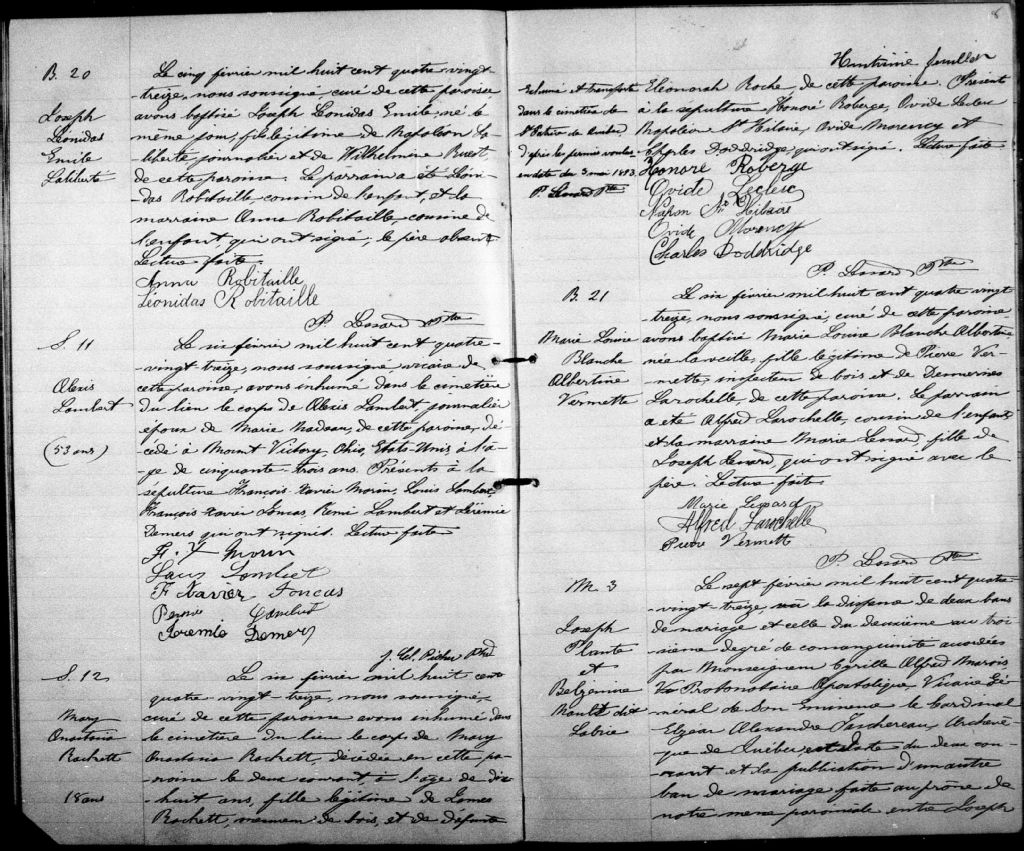 B. 20
Joseph
Léonidas
Emile
Laliberté
Le cinq février mil huit cent quatre-vingt-
treize, nous soussigné, curé de cette paroisse,
avons baptisé Joseph Léonidas Emile, né le
même jour, fils légitime de Napoléon La-
liberté journalier et de Wilhelmine Ruest,
de cette paroisse. Le parrain a été Léoni-
das Robitaille cousin de l'enfant, et la
marraine Anna Robitaille, cousine de
l'enfant, qui ont signé; le père absent
Lecture faite.
Anna Robitaille
Léonidas Robitaille
P. Lessard Ptre
S. 11
Alexis
Lambert
(53 ans)
Le six février mil huit cent quatre-
-vingt-treize, nous soussigné vicaire de
cette paroisse, avons inhumé dans le cimetière
du lieu le corps de Alexis Lambert, journalier
époux de Marie Nadeau, de cette paroisse, dé-
cédé à Mount Victory, Ohio, Etats-Unis à l'â-
ge de cinquante-trois ans. Présents à la
sépulture François-Xavier Morin, Louis Lambert,
François-Xavier Joncas, Rémi Lambert et Jérémie
Demers qui ont signé. Lecture faite
F. X Morin
Louis Lambert
F Xavier Joncas
Lambert
Jeremie Demers
Pichu Ptre
S. 12
Mary
Anastasia
Rockett
18 ans
Le six février mil huit cent
quatre-vingt treize, nous soussigné,
curé de cette paroisse avons inhumé dans
le cimetière du lieu le corps de Mary
Anastasia Rockett, décédée en cette pa-
roisse le deux courant à l'age de dix
-huit ans, fille légitime de James
Rockett, mesureur de bois, et de défunte
8
Huitième feuillet
Exhumé et transporté
dans le cimetière de
St Patrice de Québec,
d'après les permis voulus
en date du 3 mai 1893.
P. Lessard Ptre
Eleonorah Roche, de cette paroisse. Présent
à la sépulture Honoré Roberge, Ovide Leclerc
Napoléon St Hilaire, Ovide Morency et
Charles Doddridge qui ont signé. Lecture faite
Honoré Roberge
Ovide Leclerc
Napon St Hilaire
Ovide Morency
Charles Doddridge
P. Lessard Ptre
B. 21
Marie Louise
Blanche
Albertine
Vermette
Le six février mil huit cent quatre vingt
treize, nous soussigné, curé de cette paroisse
avons baptisé Marie Louise Blanche Albertine
née la veille, fille légitime de Pierre Ver-
mette, inspecteur de bois et de Demerise
Larochelle, de cette paroisse. Le parrain
a été Alfred Larochelle, cousin de l'enfant
et la marraine Marie Lessard, fille de
Joseph Lessard, qui ont signé avec le
père. Lecture faite
Marie Lessard
Alfred Larochelle
Pierre Vermette
P. Lessard Ptre
M. 3
Joseph
Plante
et
Belzemire
Nault dit
Labrie
Le sept février mil huit cent quatre-
-vingt-treize, vu la dispense de deux bans
de mariage et celle du deuxième au troi-
sième degré de consanguinité accordées
par Monseigneur Cyrille Alfred Marois
Protonotaire Apostolique, Vicaire Gé-
néral de Son Eminence le Cardinal
Elzéar Alexandre Taschereau, Archevê-
que de Québec en date du deux cou-
rant et la publication d'un autre
ban de mariage faite au prône de
notre messe paroissiale entre Joseph